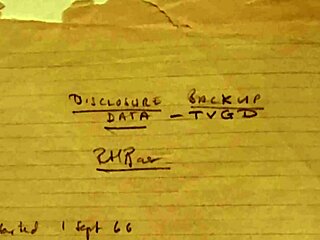 DISCLOSURE BACKUP
DATA - TVGD
RHRae
1 Sept 66